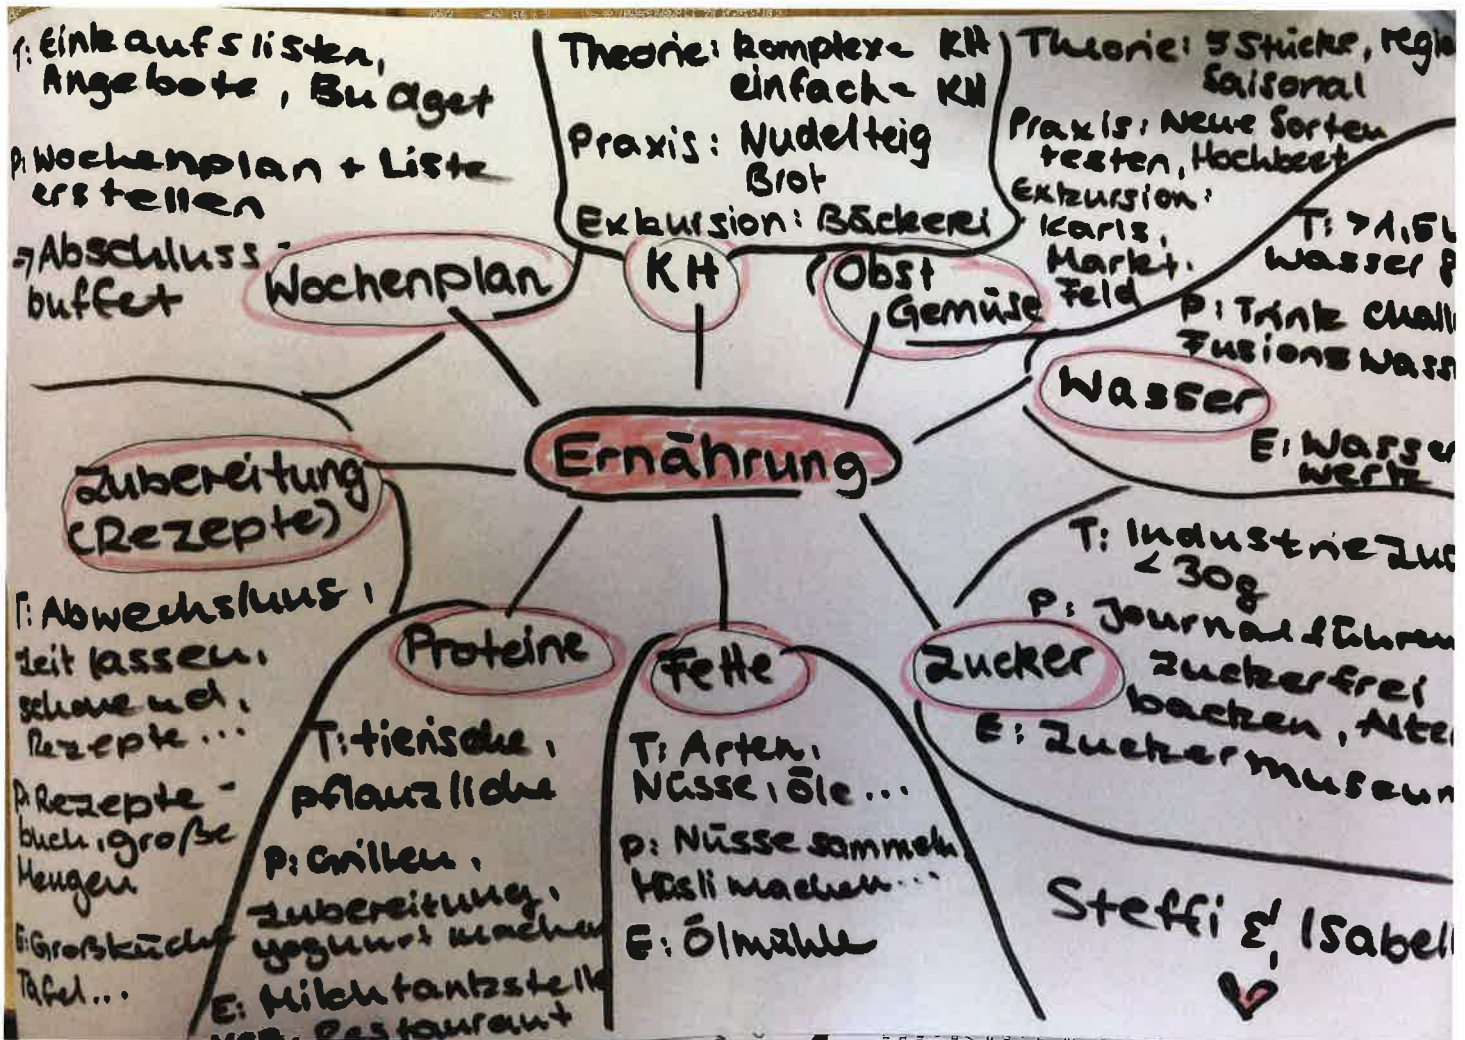 T: Einkaufslisten,
Angebote, Budget
P: Wochenplan + Liste
erstellen
→ Abschluss-
buffet
Wochenplan
Theorie: komplexe KH
einfache KH
Praxis: Nudelteig
Brot
Exkursion: Bäckerei
KH
Theorie: 5 Stücke, regio
Saisonal
Praxis: Neue Sorten
testen, Hochbeet
Exkursion:
Karls,
Markt,
Feld
Obst
Gemüse
T: >1,5L
Wasser
P: Trink Chall
Fusions Wass
Wasser
E: Wasser
werk
Ernährung
Zubereitung
(Rezepte)
T: Abwechslung,
Zeit lassen,
schonend,
Rezepte...
P: Rezepte-
buch, große
Mengen
E: Großküche
Tafel...
Proteine
T: tierische,
pflanzliche
P: Grillen,
Zubereitung,
Yogurt machen
E: Milchtankstelle
Restaurant
Fette
T: Arten,
Nüsse, Öle...
P: Nüsse sammeln,
Müsli machen...
E: Ölmühle
Zucker
T: Industriezuc
< 30g
P: Journal führen
zuckerfrei
backen, Alte
E: Zuckermuseum
Steffi & Isabell